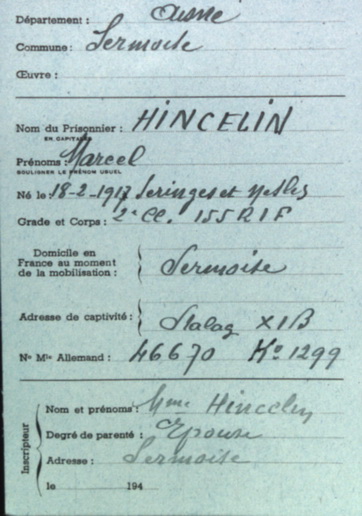 Département : Aisne
Commune : Sermoise
Œuvre :
Nom du Prisonnier : HINCELIN
EN CAPITALES
Prénoms : Marcel
SOULIGNER LE PRÉNOM USUEL
Né le 18-2-1917 Seringes et Nesles
Grade et Corps : 2e CC. 155 R I F
Domicile en
France au moment
de la mobilisation :
Sermoise
Adresse de captivité : Stalag X I B
No Mle Allemand : 46670 Ko 1299
Inscripteur
Nom et prénoms : Mme Hincelin
Degré de parenté : Epouse
Adresse : Sermoise
le 194